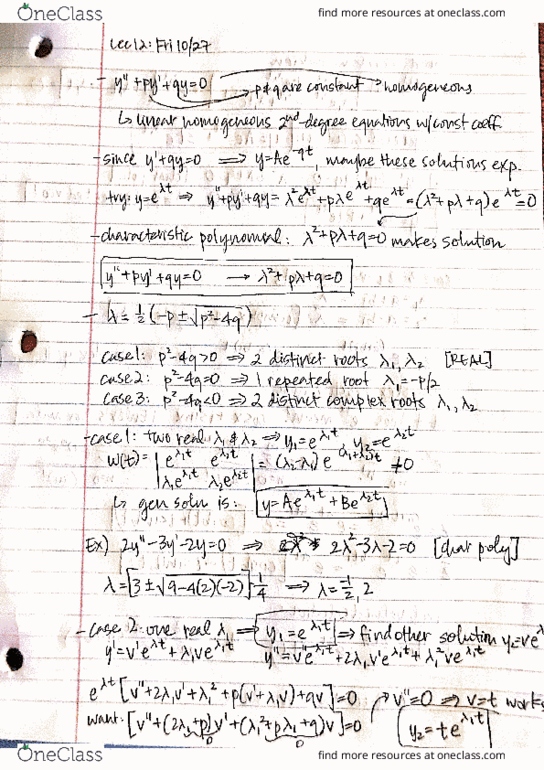 OneClass
find more resources at oneclass.com
Lec 12: Fri 10/27
- y" + py' + qy = 0 p & q are constant homogeneous
↳ linear homogeneous 2nd-degree equations w/ const coeff.
- since y' + qy = 0 ⟹ y = Ae^{-qt}, maybe these solutions exp.
try: y = e^{λt} ⟹ y" + py' + qy = λ²e^{λt} + pλe^{λt} + qe^{λt} = (λ² + pλ + q)e^{λt} = 0
- characteristic polynomial: λ² + pλ + q = 0 makes solution
y" + py' + qy = 0 → λ² + pλ + q = 0
- λ = ½(-p ± √(p² - 4q))
case 1: p² - 4q > 0 ⟹ 2 distinct roots λ₁, λ₂ [REAL]
case 2: p² - 4q = 0 ⟹ 1 repeated root λ₁ = -p/2
case 3: p² - 4q < 0 ⟹ 2 distinct complex roots λ₁, λ₂
- case 1: two real λ₁ & λ₂ ⟹ y₁ = e^{λ₁t}, y₂ = e^{λ₂t}
W(t) = | e^{λ₁t} e^{λ₂t} | = (λ₂ - λ₁)e^{(λ₁+λ₂)t} ≠ 0
| λ₁e^{λ₁t} λ₂e^{λ₂t} |
↳ gen soln is: y = Ae^{λ₁t} + Be^{λ₂t}
Ex) 2y" - 3y' - 2y = 0 ⟹ 2λ² - 3λ - 2 = 0 [char poly]
λ = [3 ± √(9 - 4(2)(-2))] ¼ ⟹ λ = -½, 2
- case 2: one real λ ⟹ y₁ = e^{λ₁t} ⟹ find other solution y₂ = ve^λ
y' = v'e^{λ₁t} + λ₁ve^{λ₁t} y" = v"e^{λ₁t} + 2λ₁v'e^{λ₁t} + λ₁²ve^{λ₁t}
e^{λt}[v" + 2λ₁v' + λ₁² + p(v' + λ₁v) + qv] = 0 v" = 0 ⟹ v = t works
want: [v" + (2λ₁ + p)v' + (λ₁² + pλ₁ + q)v] = 0 y₂ = te^{λ₁t}
0 0
OneClass
find more resources at oneclass.com